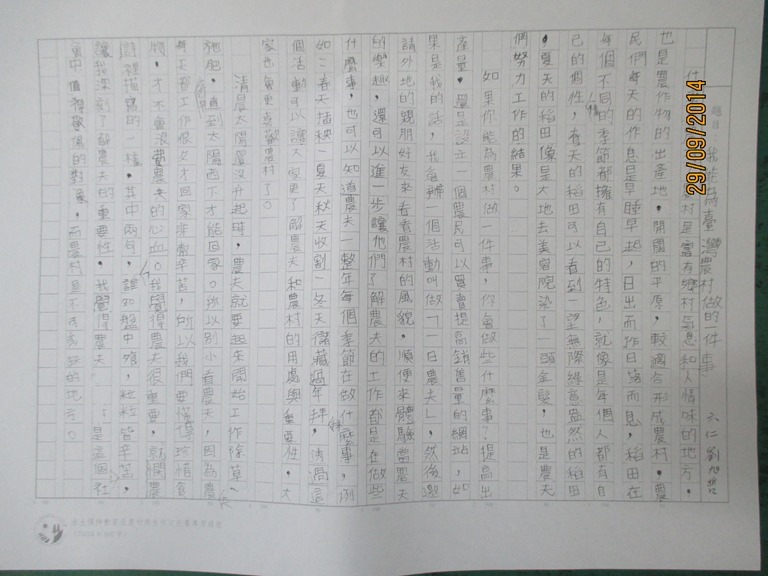 題目:我能為臺灣農村做的一件事
六仁 劉旭哲
什 農村是富有鄉村氣息和人情味的地方,
也是農作物的出產地,開闊的平原,較適合形成農村。農
民們每天的作息是早睡早起,日出而作日落而息,稻田在
每個不同的季節都擁有自己的特色,就像是每個人都有自
己的個性,春天的稻田可以看到一望無際綠意盎然的稻田
,夏天的稻田像是大地去美容院染了一頭金髮,也是農夫
們努力工作的結果。
如果你能為農村做一件事,你會做些什麼事?提高出
產量,還是設立一個農民可以買賣提高銷售量的網站,如
果是我的話,我會辦一個活動叫做「一日農夫」,然後邀
請外地的親朋好友來看看農村的風貌,順便來體驗當農夫
的樂趣,還可以進一步讓他們了解農夫的工作都是在做些
什麼事,也可以知道農夫一整年每個季節在做什麼事,例
如:春天插秧、夏天秋天收割、冬天儲藏過年拜,透過這
個活動可以讓大家更了解農夫和農村的用處與重要性,大
家也會更喜歡農村了。
清晨太陽還沒升起時,農夫就要起來開始工作除草、
施肥,直到太陽西下才能回家。所以別小看農夫,因為農夫
每天都工作很久才回家非常辛苦,所以我們要懂得珍惜食
物,才不會浪費農夫的心血。我覺得農夫很重要,就
詩裡描寫的一樣,其中兩句,誰知盤中飧,粒粒皆辛苦,
讓我深刻了解農夫的重要性,我覺得農夫 是這個社
會中值得敬佩的對象,而農村是不可或缺的地方。
29/09/2014